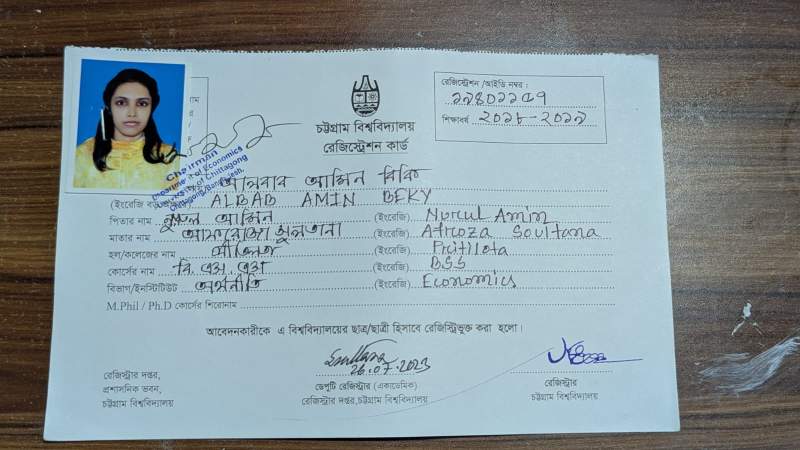 রেজিস্ট্রেশন /আইডি নম্বর :
শিক্ষাবর্ষ ২০১৮-২০১৯
চট্টগ্রাম বিশ্ববিদ্যালয়
রেজিস্ট্রেশন কার্ড
Chairman
Department of Economics
University of Chittagong
Chittagong, Bangladesh.
আলবাব আমিন বিকি
(ইংরেজি ALBAB AMIN BEKY
পিতার নাম নুরুল আমিন (ইংরেজি) Nurul Amin
মাতার নাম আফরোজা সুলতানা (ইংরেজি) Afroza Soultana
হল/কলেজের নাম প্রীতিলতা (ইংরেজি) Pritilota
কোর্সের নাম বি.এস.এস (ইংরেজি) BSS
বিভাগ/ইনস্টিটিউট অর্থনীতি (ইংরেজি) Economics
M.Phil / Ph.D কোর্সের শিরোনাম
আবেদনকারীকে এ বিশ্ববিদ্যালয়ের ছাত্র/ছাত্রী হিসাবে রেজিস্ট্রিভুক্ত করা হলো।
26.07.2023
রেজিস্ট্রার দপ্তর,
প্রশাসনিক ভবন,
চট্টগ্রাম বিশ্ববিদ্যালয়
ডেপুটি রেজিস্ট্রার (একাডেমিক)
রেজিস্ট্রার দপ্তর,চট্টগ্রাম বিশ্ববিদ্যালয়
রেজিস্ট্রার
চট্টগ্রাম বিশ্ববিদ্যালয়